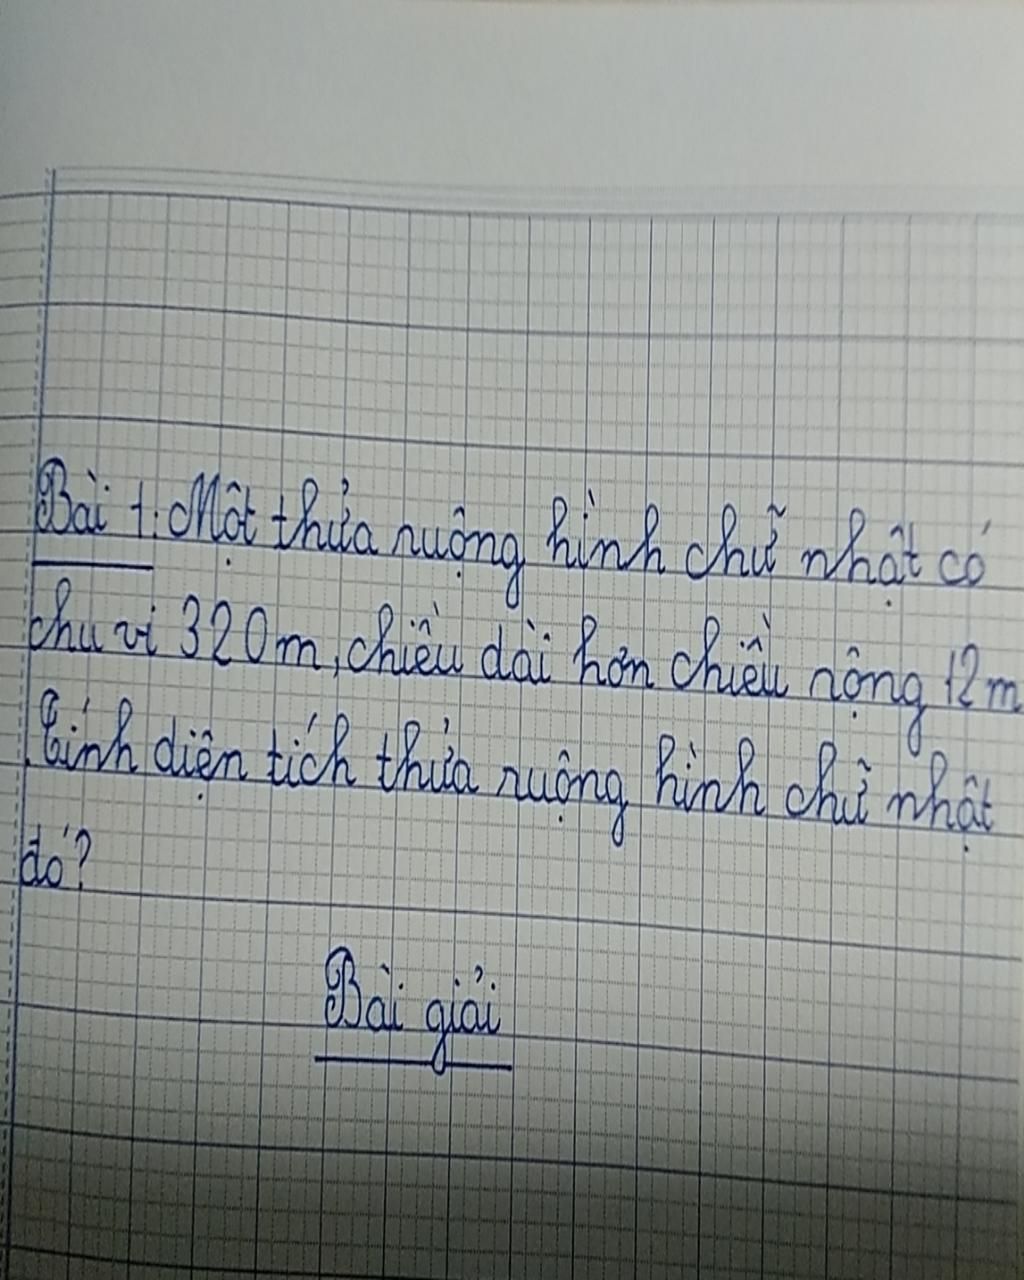 Bài 1: Một thửa ruộng hình chữ nhật có
chu vi 320m, chiều dài hơn chiều rộng 12m
. Tính diện tích thửa ruộng hình chữ nhật
đó?
Bài giải